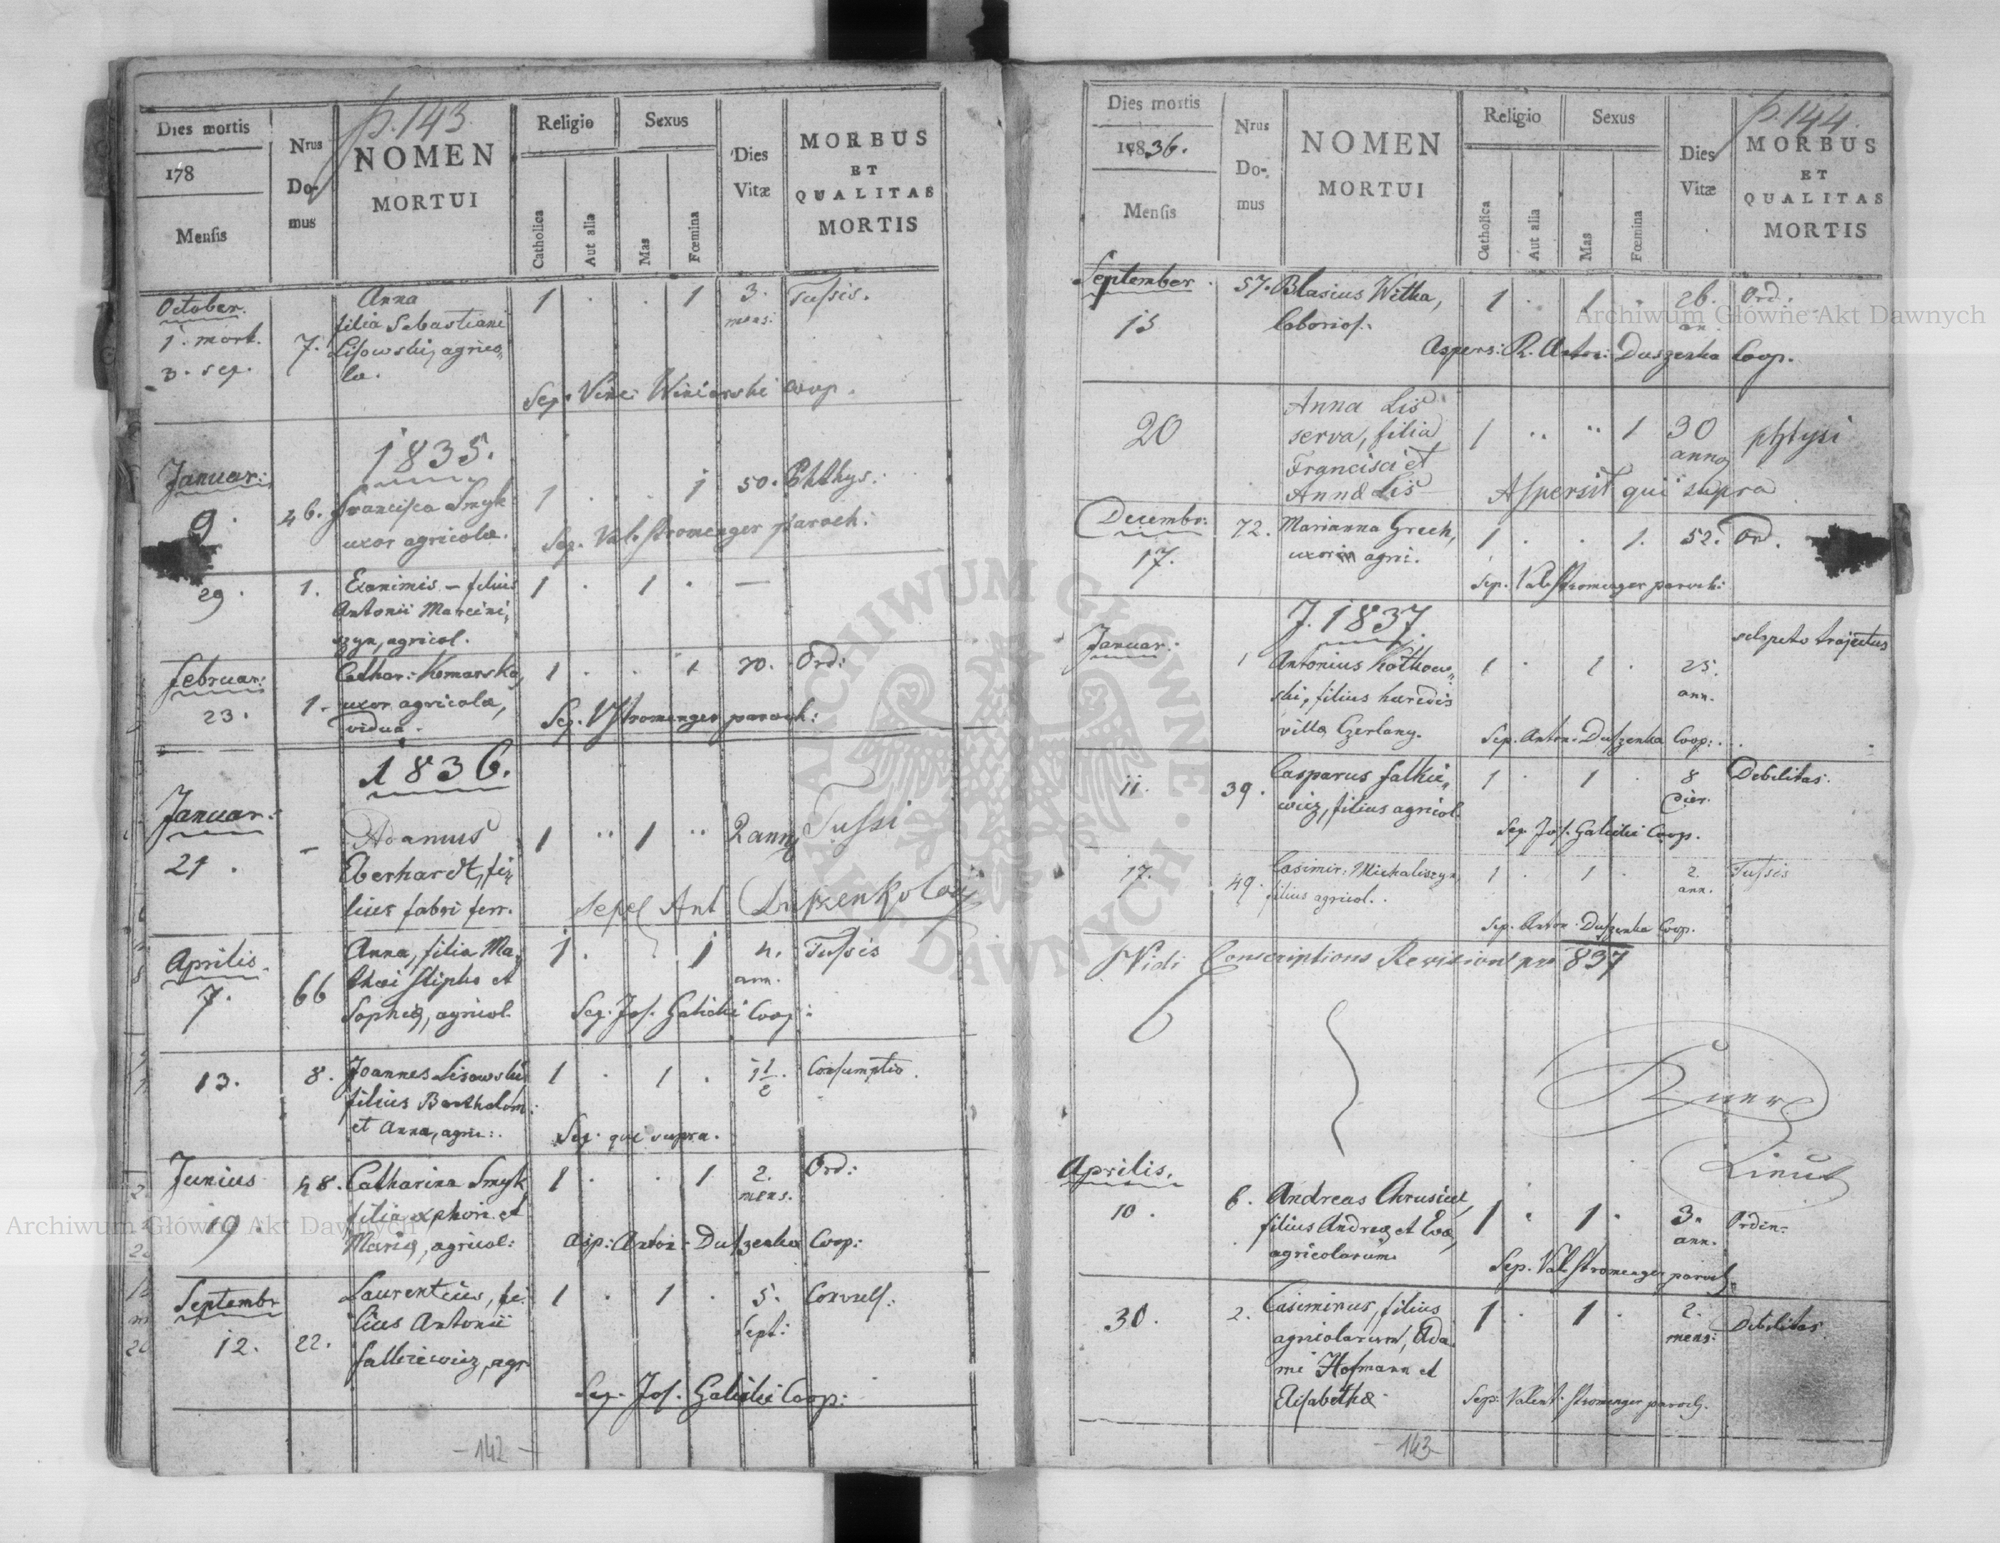 p. 143.
Dies mortis
178
Mensis
Nrus
Do-
mus
NOMEN
MORTUI
Religio
Catholica
Aut alia
Sexus
Mas
Fœmina
Dies
Vitæ
MORBUS
ET
QUALITAS
MORTIS
October.
1. mort.
3. sep.
7.
Anna
filia Sebastiani
Lisowski, agrico,
læ.
1 . . 1
3.
mens:
Tussis.
Sep. Vinc: Winiarski coop.
1835.
Januar:
9.
46.
Francisca Smyk
uxor agricolæ.
1 . . 1
50.
Phthys:
Sep. Val. Stromenger paroch:
29.
1.
Exanimis – filius
Antonii Marcini,
szyn, agricol.
1 . 1 . —
Februar:
23.
1.
Cathar: Komarska,
uxor agricolæ,
vidua.
1 . . 1
70.
Ord:
Sep. V Stromenger paroch:
1836.
Januar:
21.
–
Adamus
Eberhardt, fi,
lius fabri ferr.
1 " 1 "
2 anny
Tussi
sepel Ant Duszenko Coop
Aprilis.
7.
66
Anna, filia Ma,
thæi Stipho et
Sophiæ, agricol.
1 . . 1
4.
ann.
Tussis
Sep. Jos. Galicki Coop:
13.
8.
Joannes Lisowski
filius Bartholom:
et Annæ, agric:.
1 . 1 .
1 1/2.
Consumptio.
Sep. qui supra.
Junius
19.
48.
Catharina Smyk
filia et
Mariæ, agricol:
1 . . 1
2.
mens.
Ord:
Asp: Anton: Duszenka Coop:
Septembr
12.
22.
Laurentius, fi,
lius Antonii
Falkiewicz, agr
1 . 1 .
5.
sept:
Convuls:
Sep. Jos. Galicki Coop:
– 142 –
p. 144.
Dies mortis
1836.
Mensis
Nrus
Do-
mus
NOMEN
MORTUI
Religio
Catholica
Aut alia
Sexus
Mas
Fœmina
Dies
Vitæ
MORBUS
ET
QUALITAS
MORTIS
September.
15
57.
Blasius Witka,
laborios.
1 . 1 .
26.
an.
Ord.
Aspers: R. Anton: Duszenka Coop.
20
Anna Lis
serva, filia
Francisci et
Annæ Lis
1 " " 1
30
annoꝝ
phtysi
Aspersit qui supra
Decembr:
17.
72.
Marianna Grech,
uxor agri.
1 . . 1.
52.
Ord.
Sep. Val. Stromenger paroch:
J. 1837.
Januar:
1
Antonius Kotkow,
ski, filius hæredis
villæ Czerlany.
1 . 1 .
25.
ann.
trajectus
Sep. Anton. Duszenka Coop:
11.
39.
Casparus Falkie,
wicz, filius agricol.
1 . 1 .
8
dier.
Debilitas.
Sep. Jos. Galicki Coop.
17.
49.
Casimir: Michaliszyn,
filius agricol.
1 . 1 .
2.
ann.
Tussis
Sep. Anton. Duszenka Coop.
Vidi Conscriptions Revision pro 837
Lieut
Aprilis.
10.
6.
Andreas Chrusciel,
filius Andreæ et Evæ,
agricolarum.
1 . 1 .
3.
ann.
Ordin.
Sep. Val. Stromenger paroch.
30.
2.
Casimirus, filius
agricolarum, Ada,
mi Hofmann et
Elisabethæ.
1 . 1 .
2.
mens:
Debilitas
Sep: Valent: Stromenger paroch.
– 143 –
Archiwum Główne Akt Dawnych
Archiwum Główne Akt Dawnych
ARCHIWUM GŁÓWNE AKT DAWNYCH